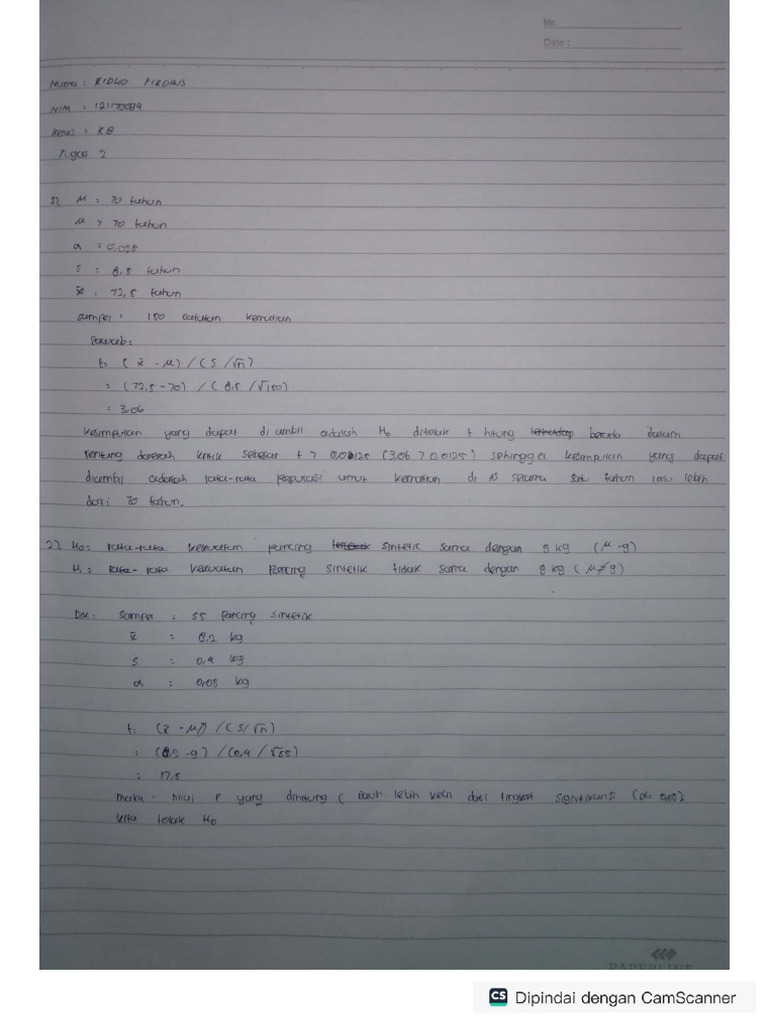 No
Date :
Nama : RIDHO FIRDAUS
NIM : 12170084
Kelas : KB
Tugas 2
1) μ = 70 tahun
μ > 70 tahun
α : 0,025
s : 8,5 tahun
x̄ : 72,5 tahun
sampel : 150 catatan kematian
Jawab :
t: ( x̄ - μ) / ( S /√n)
: (72,5 - 70) / ( 8,5 /√150)
: 3,06
kesimpulan yang dapat di ambil adalah H₀ ditolak t hitung berada dalam
rentang daerah kritik sebesar t > (3,06 > 0,0125) sehingga kesimpulan yang dapat
diambil adalah rata-rata populasi umur kematian di AS selama tahun lalu lebih
dari 70 tahun.
2) H₀ : rata-rata kekuatan pancing sintetik sama dengan 9 kg (μ - 9)
H₁ : rata-rata kekuatan pancing sintetik tidak sama dengan 9 kg ( μ ≠ 9)
Dik : Sampel : 55 pancing sintetik
x̄ : 8,2 kg
s : 0,4 kg
α : 0,05 kg
t: (x̄ - μ) / ( S/√n)
: (8,2 - 9) / (0,4 / √55)
: 17,5
maka nilai P yang dihitung ( jauh lebih kecil dari tingkat signifikansi (α: 0,05)
kita tolak H₀
PAPERLINE
CS Dipindai dengan CamScanner